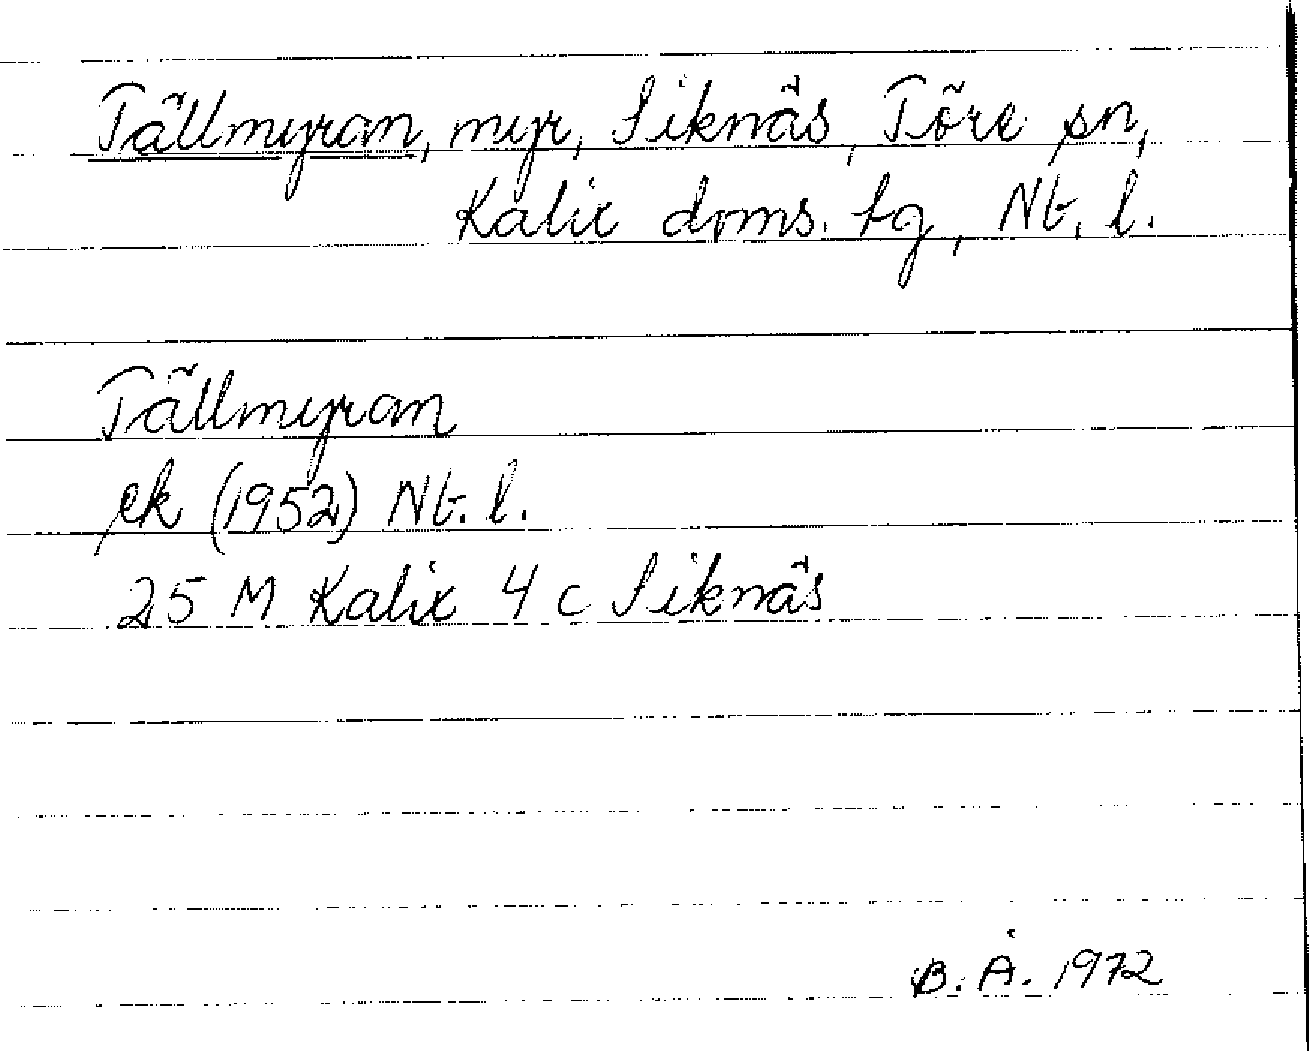 Tällmyran, myr, Siknäs, Töre sn,
Kalix dms. tg, Nb. l.
Tällmyran
ek (1952) Nb. l.
25 M Kalix 4 c Siknäs
B. Å. 1972